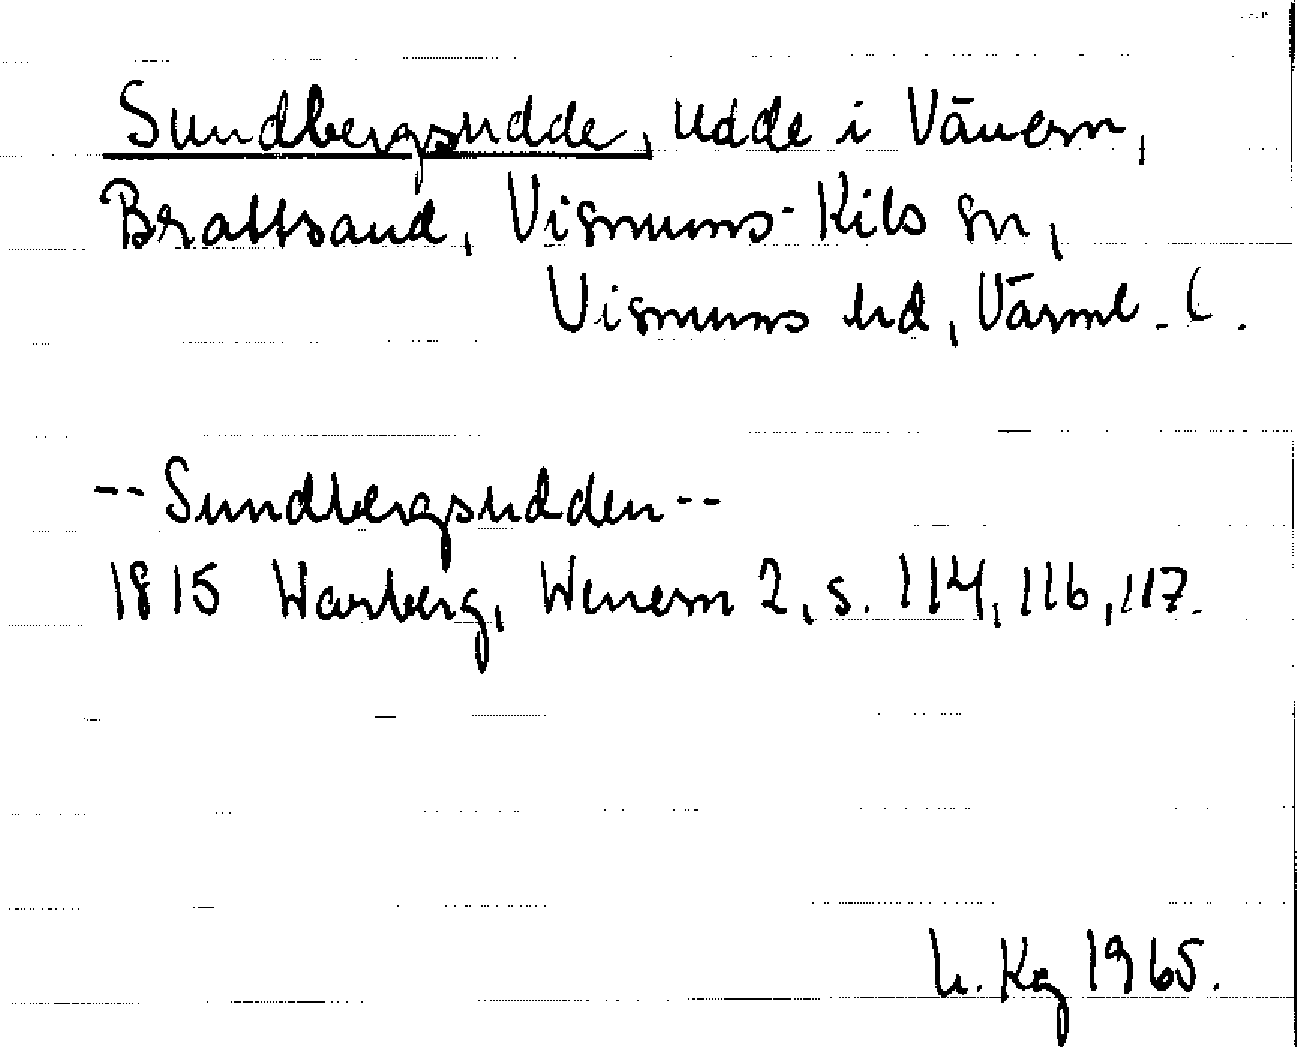 Sundbergsudde, udde i Vänern,
Brattsand, Visnums-Kils sn,
Visnums hd, Värml. l.
-- Sundbergsudden --
1815 Warberg, Wenern 2, s. 114, 116, 117.
h. Kg 1965.